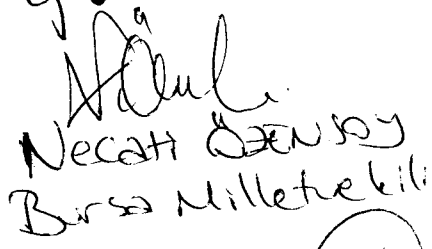 Necati ÖZENSOY
Bursa Milletvekili